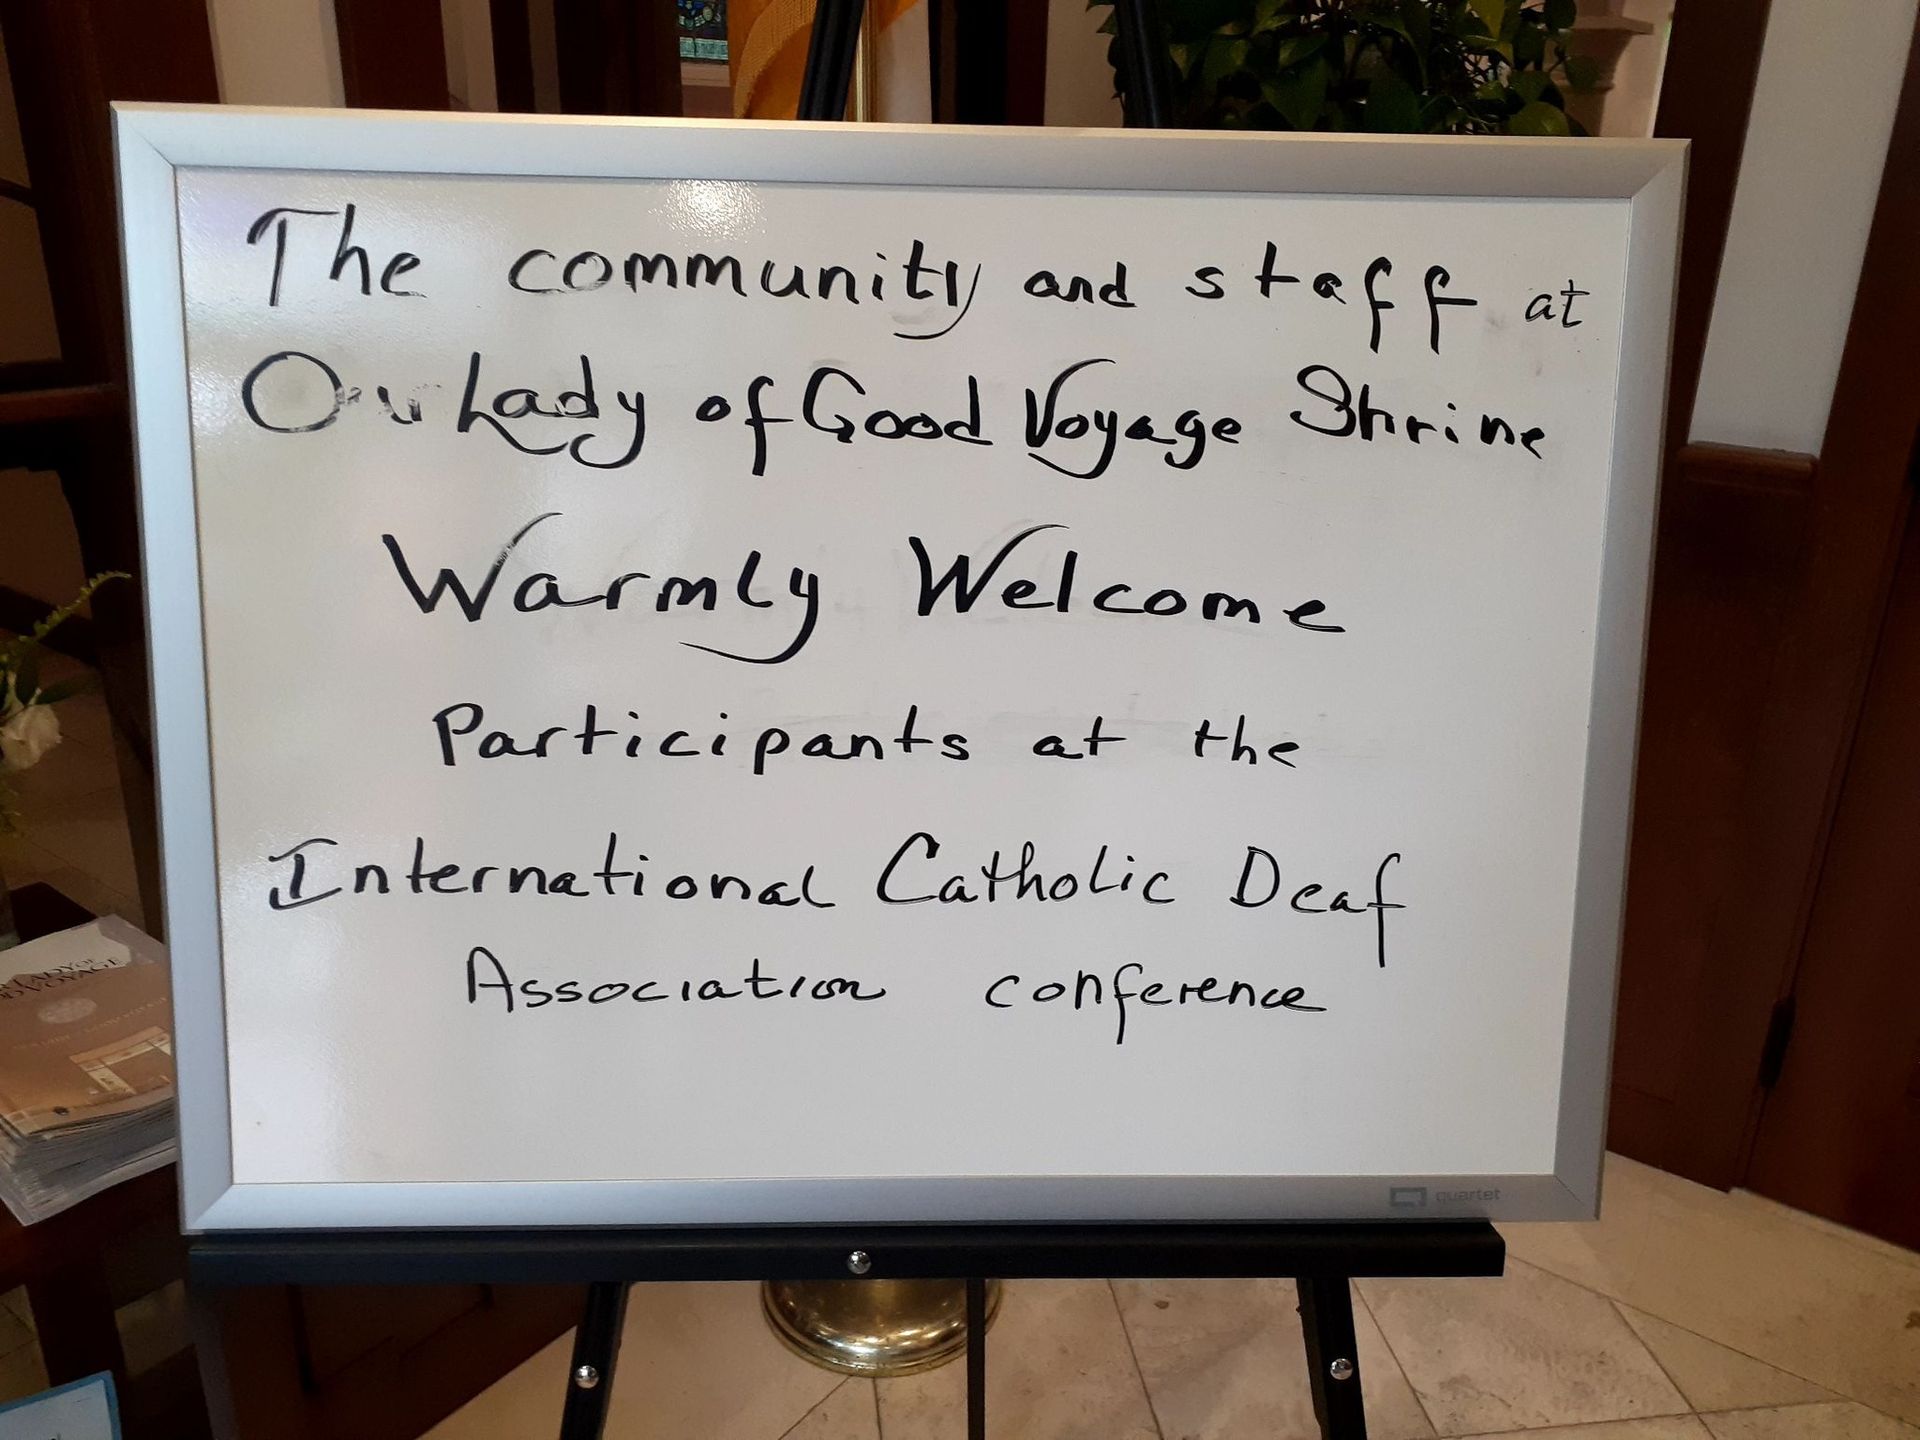 The community and staff at
Our Lady of Good Voyage Shrine
Warmly Welcome
Participants at the
International Catholic Deaf
Association conference
quartet